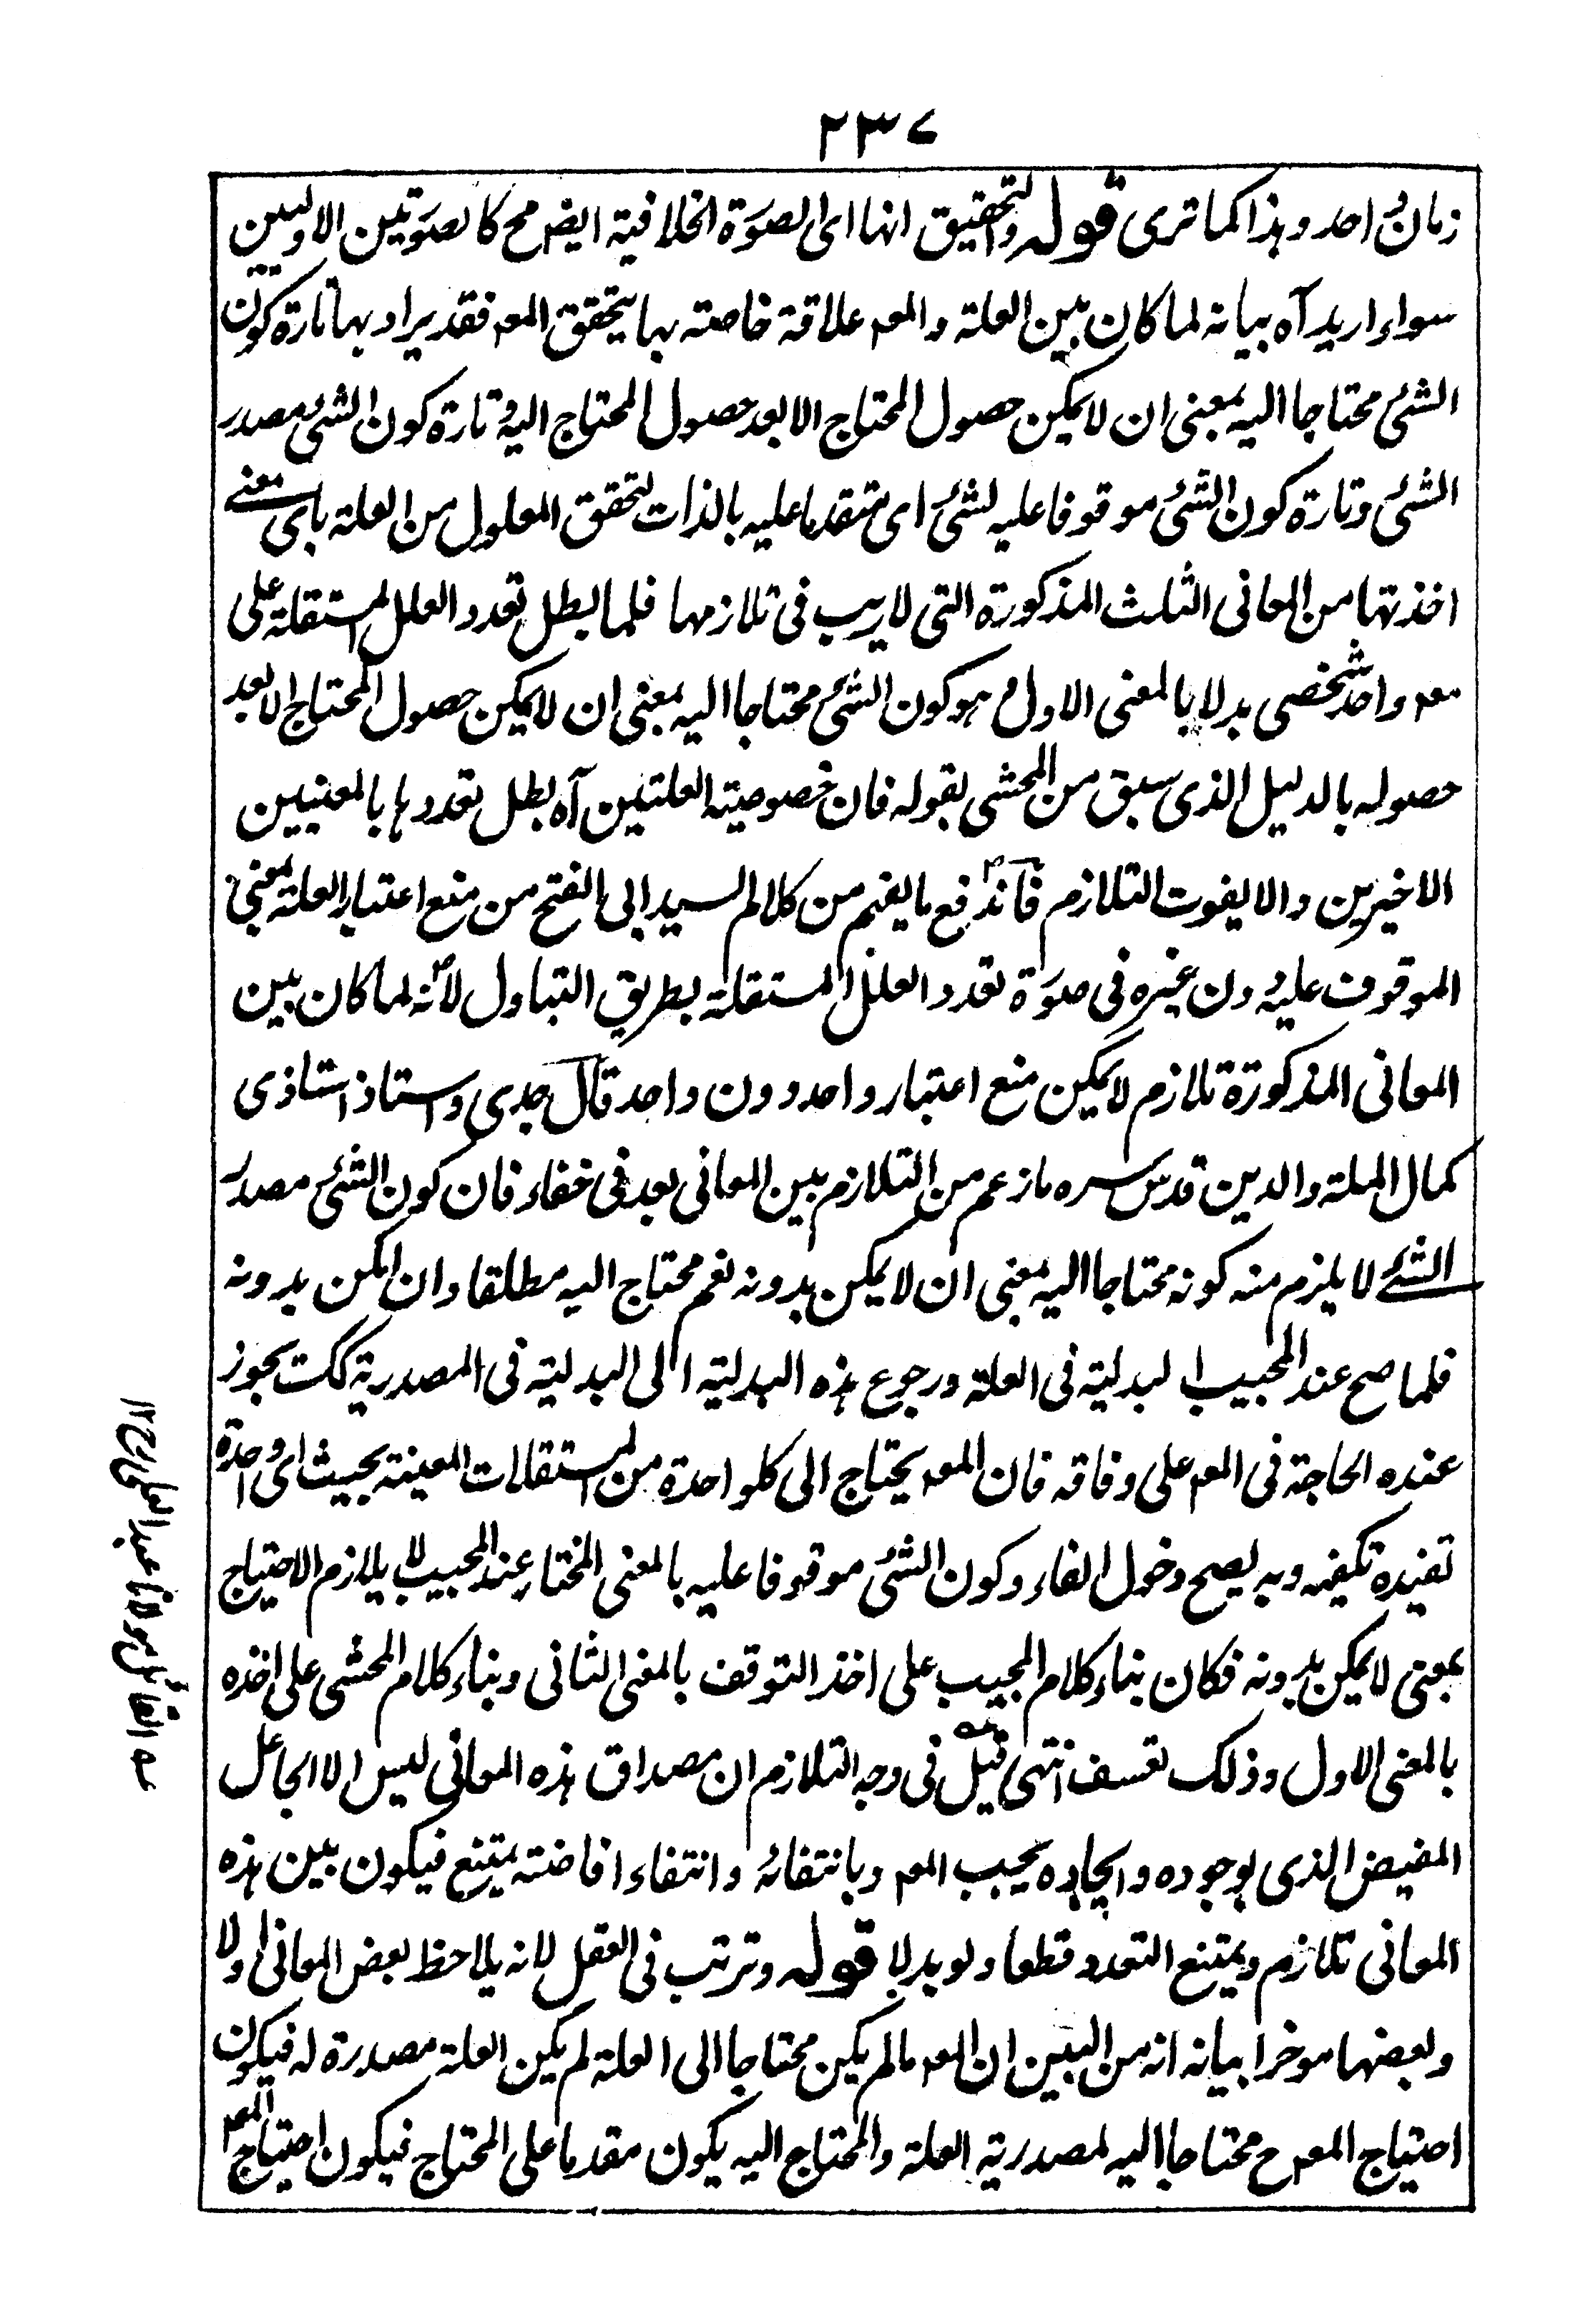 ٢٣٧
زمان واحد وهذا كما ترى قوله والتحقيق انها اى الصورة الخلافية ايضا مح كالصورتين الاوليين
سواء اريد آه بيانه لما كان بين العلة والمعـ علاقة خاصة بها يتحقق المعـ فقد يراد بها تارة كون
الشئ محتاجا اليه بمعنى ان لا يمكن حصول المحتاج الا بعد حصول المحتاج اليه وتارة كون الشئ مصدر
الشئ وتارة كون الشئ موقوفا عليه لشئ اى متقدما عليه بالذات لتحقق المعلول من العلة باى معنى
اخذتها من المعانى الثلث المذكورة التى لا ريب فى تلازمها فلما بطل تعدد العلل المستقلة على
معـ واحد شخصى بدلا بالمعنى الاول وهو كون الشئ محتاجا اليه بمعنى ان لا يمكن حصول المحتاج الا بعد
حصوله بالدليل الذى سبق من المحشى بقوله فان خصوصية العلتين آه بطل تعددها بالمعنيين
الاخيرين والا يفوت التلازم فاندفع ما يفهم من كلام السيد ابى الفتح من منع اعتبار العلة بمعنى
الموقوف عليه دون غيره فى صورة تعدد العلل المستقلة بطريق التبادل لانه لما كان بين
المعانى المذكورة تلازم لا يمكن منع اعتبار واحد دون واحد قال جدى واستاذ استاذى
كمال الملة والدين قدس سره ما زعم من التلازم بين المعانى بعد فى خفاء فان كون الشئ مصدر
الشئ لا يلزم منه كونه محتاجا اليه بمعنى ان لا يمكن بدونه نعم محتاج اليه مطلقا وان امكن بدونه
فلما صح عند المجيب البدلية فى العلة ورجوع هذه البدلية الى البدلية فى المصدرية كك يجوز
عنده الحاجة فى المعـ على وفاقه فان المعـ يحتاج الى كلواحدة من المستقلات المعينة بحيث اى واحدة
تفيده تكفيه وبه يصح دخول الفاء وكون الشئ موقوفا عليه بالمعنى المختار عند المجيب لا يلازم الاحتياج
بمعنى لا يمكن بدونه فكان بناء كلام المجيب على اخذ التوقف بالمعنى الثانى وبناء كلام المحشى على اخذه
بالمعنى الاول وذلك تعسف انتهى قيل فى وجه التلازم ان مصداق هذه المعانى ليس الا الجاعل
المفيض الذى بوجوده وايجاده يجب المعـ وبانتفائه وانتفاء افاضته يمتنع فيكون بين هذه
المعانى تلازم ويمتنع التعدد قطعا ولو بدلا قوله وترتب فى العقل لانه يلاحظ بعض المعانى اولا
وبعضها موخرا بيانه انه من البين ان المعـ ما لم يكن محتاجا الى العلة لم يكن العلة مصدرة له فيكون
احتياج المعـ ح محتاجا اليه لمصدرية العلة والمحتاج اليه يكون مقدما على المحتاج فيكون احتياج المعـ
عه القائل مولانا عبد العلى ١٢